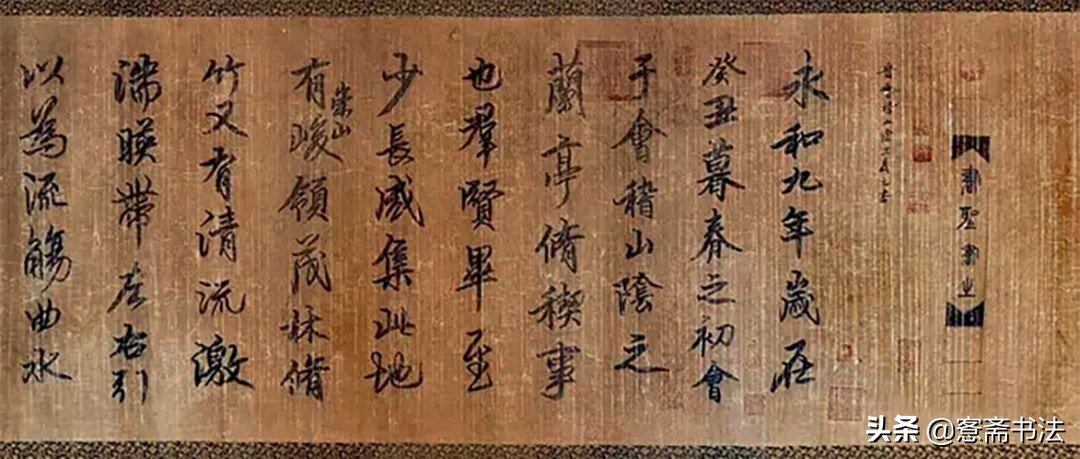 永和九年歲在
癸丑暮春之初會
于會稽山陰之
蘭亭脩稧事
也羣賢畢至
少長咸集此地
有崇山峻領茂林脩
竹又有清流激
湍暎帶左右引
以為流觴曲水
头条 @愙斋书法